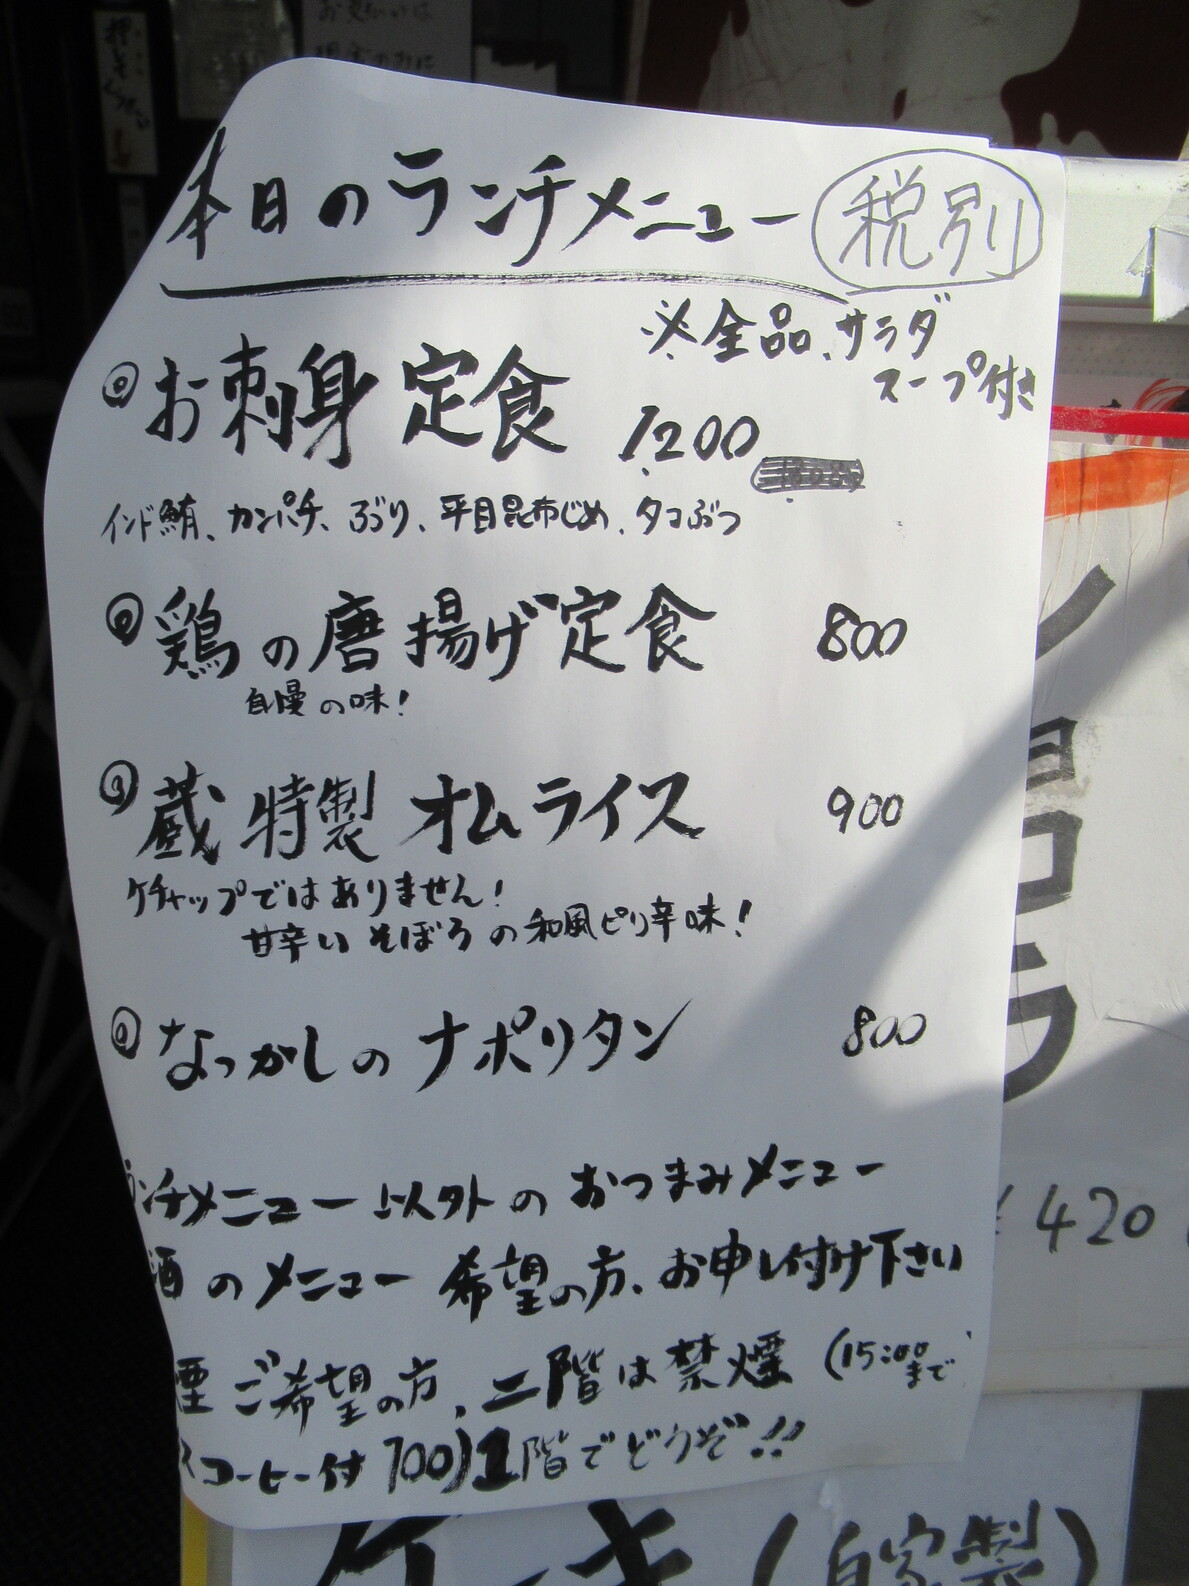 本日のランチメニュー 税別
※全品、サラダ
スープ付き
お刺身定食 1,200
インド鮪、カンパチ、ぶり、平目昆布じめ、タコぶつ
鶏の唐揚げ定食 800
自慢の味！
蔵特製オムライス 900
ケチャップではありません！
甘辛いそぼろの和風ピリ辛味！
なつかしのナポリタン 800
ンチメニュー以外のおつまみメニュー
酒のメニュー希望の方、お申し付け下さい
煙ご希望の方、二階は禁煙（15:00まで
コーヒー付 700）1階でどうぞ!!
ン
コ
ラ
¥420
ケーキ（自家製）
押してください
お支払いは